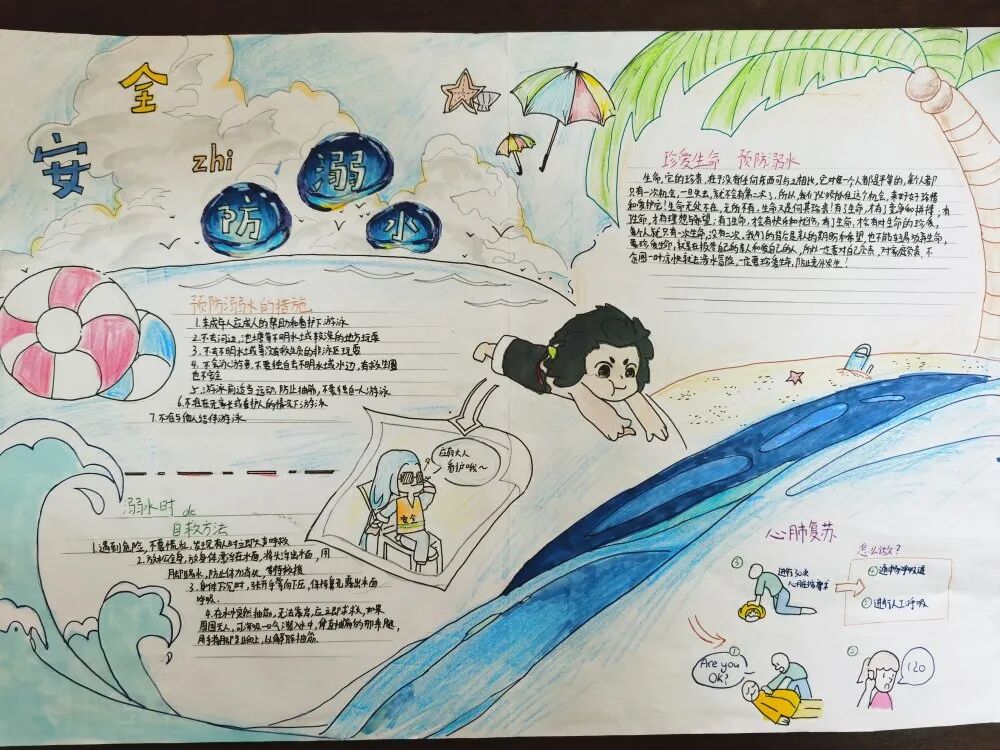 安全
zhi
防溺水
珍爱生命 预防溺水
生命,它的珍贵,在于没有任何东西可与之相比,它对每一个人都是平等的,每个人都
只有一次机会,一旦失去,就不会有第二次了,所以,我们
和爱护它!生命无处不在,无所不有,生命又是何其珍贵!有了生命,才有了竞争和拼搏,有
生命,才有理想与希望;有了生命,才会有快乐和忧伤,有了生命,才会有对生命的珍爱,
每个人就只有一次生命,没有二次,我们的背后是亲人的期盼和希望,也不能轻易放弃生命,
要珍爱生命,就是在接受自己的亲人和爱自己的人,所以一定要对自己负责,对家庭负责,不
贪图一时凉快就去涉水冒险,一定要珍爱生命,防止意外发生!
预防溺水的措施
1.未成年人应成人的帮助和看护下游泳
2.不去河边,池塘等不明水土或较深的地方玩耍
3.不去不明水域等没有救生员的非泳区玩耍
4.不会游泳者,不要独自去不明水域水边,有救生圈
也不安全
5.游泳前适当运动,防止抽筋,不要独自一人游泳
6.不在在无家长或看护人的情况下游泳
7.不在与他人结伴游泳
应有大人
看护哦~
安全
溺水时de
自救方法
1.遇到危险,不要慌乱,发现有人时立即大声呼救
2.放松全身,放身体漂浮在水面,将头浮出水面,用
脚踢水,防止体力丧失,等待救援
3.身体下沉时,张开手掌向下压,保持鼻孔露出水面
呼吸.
4.在水中突然抽筋,无法靠岸,应立即求救,如果
周围无人,可深吸一口气潜入水中,伸直抽筋的那条腿,
用手将脚趾向上,以解除抽筋.
心肺复苏
怎么做?
③
进行30次
心脏按摩
④通畅呼吸道
⑤进行人工呼吸
①
Are you
OK?
②
120